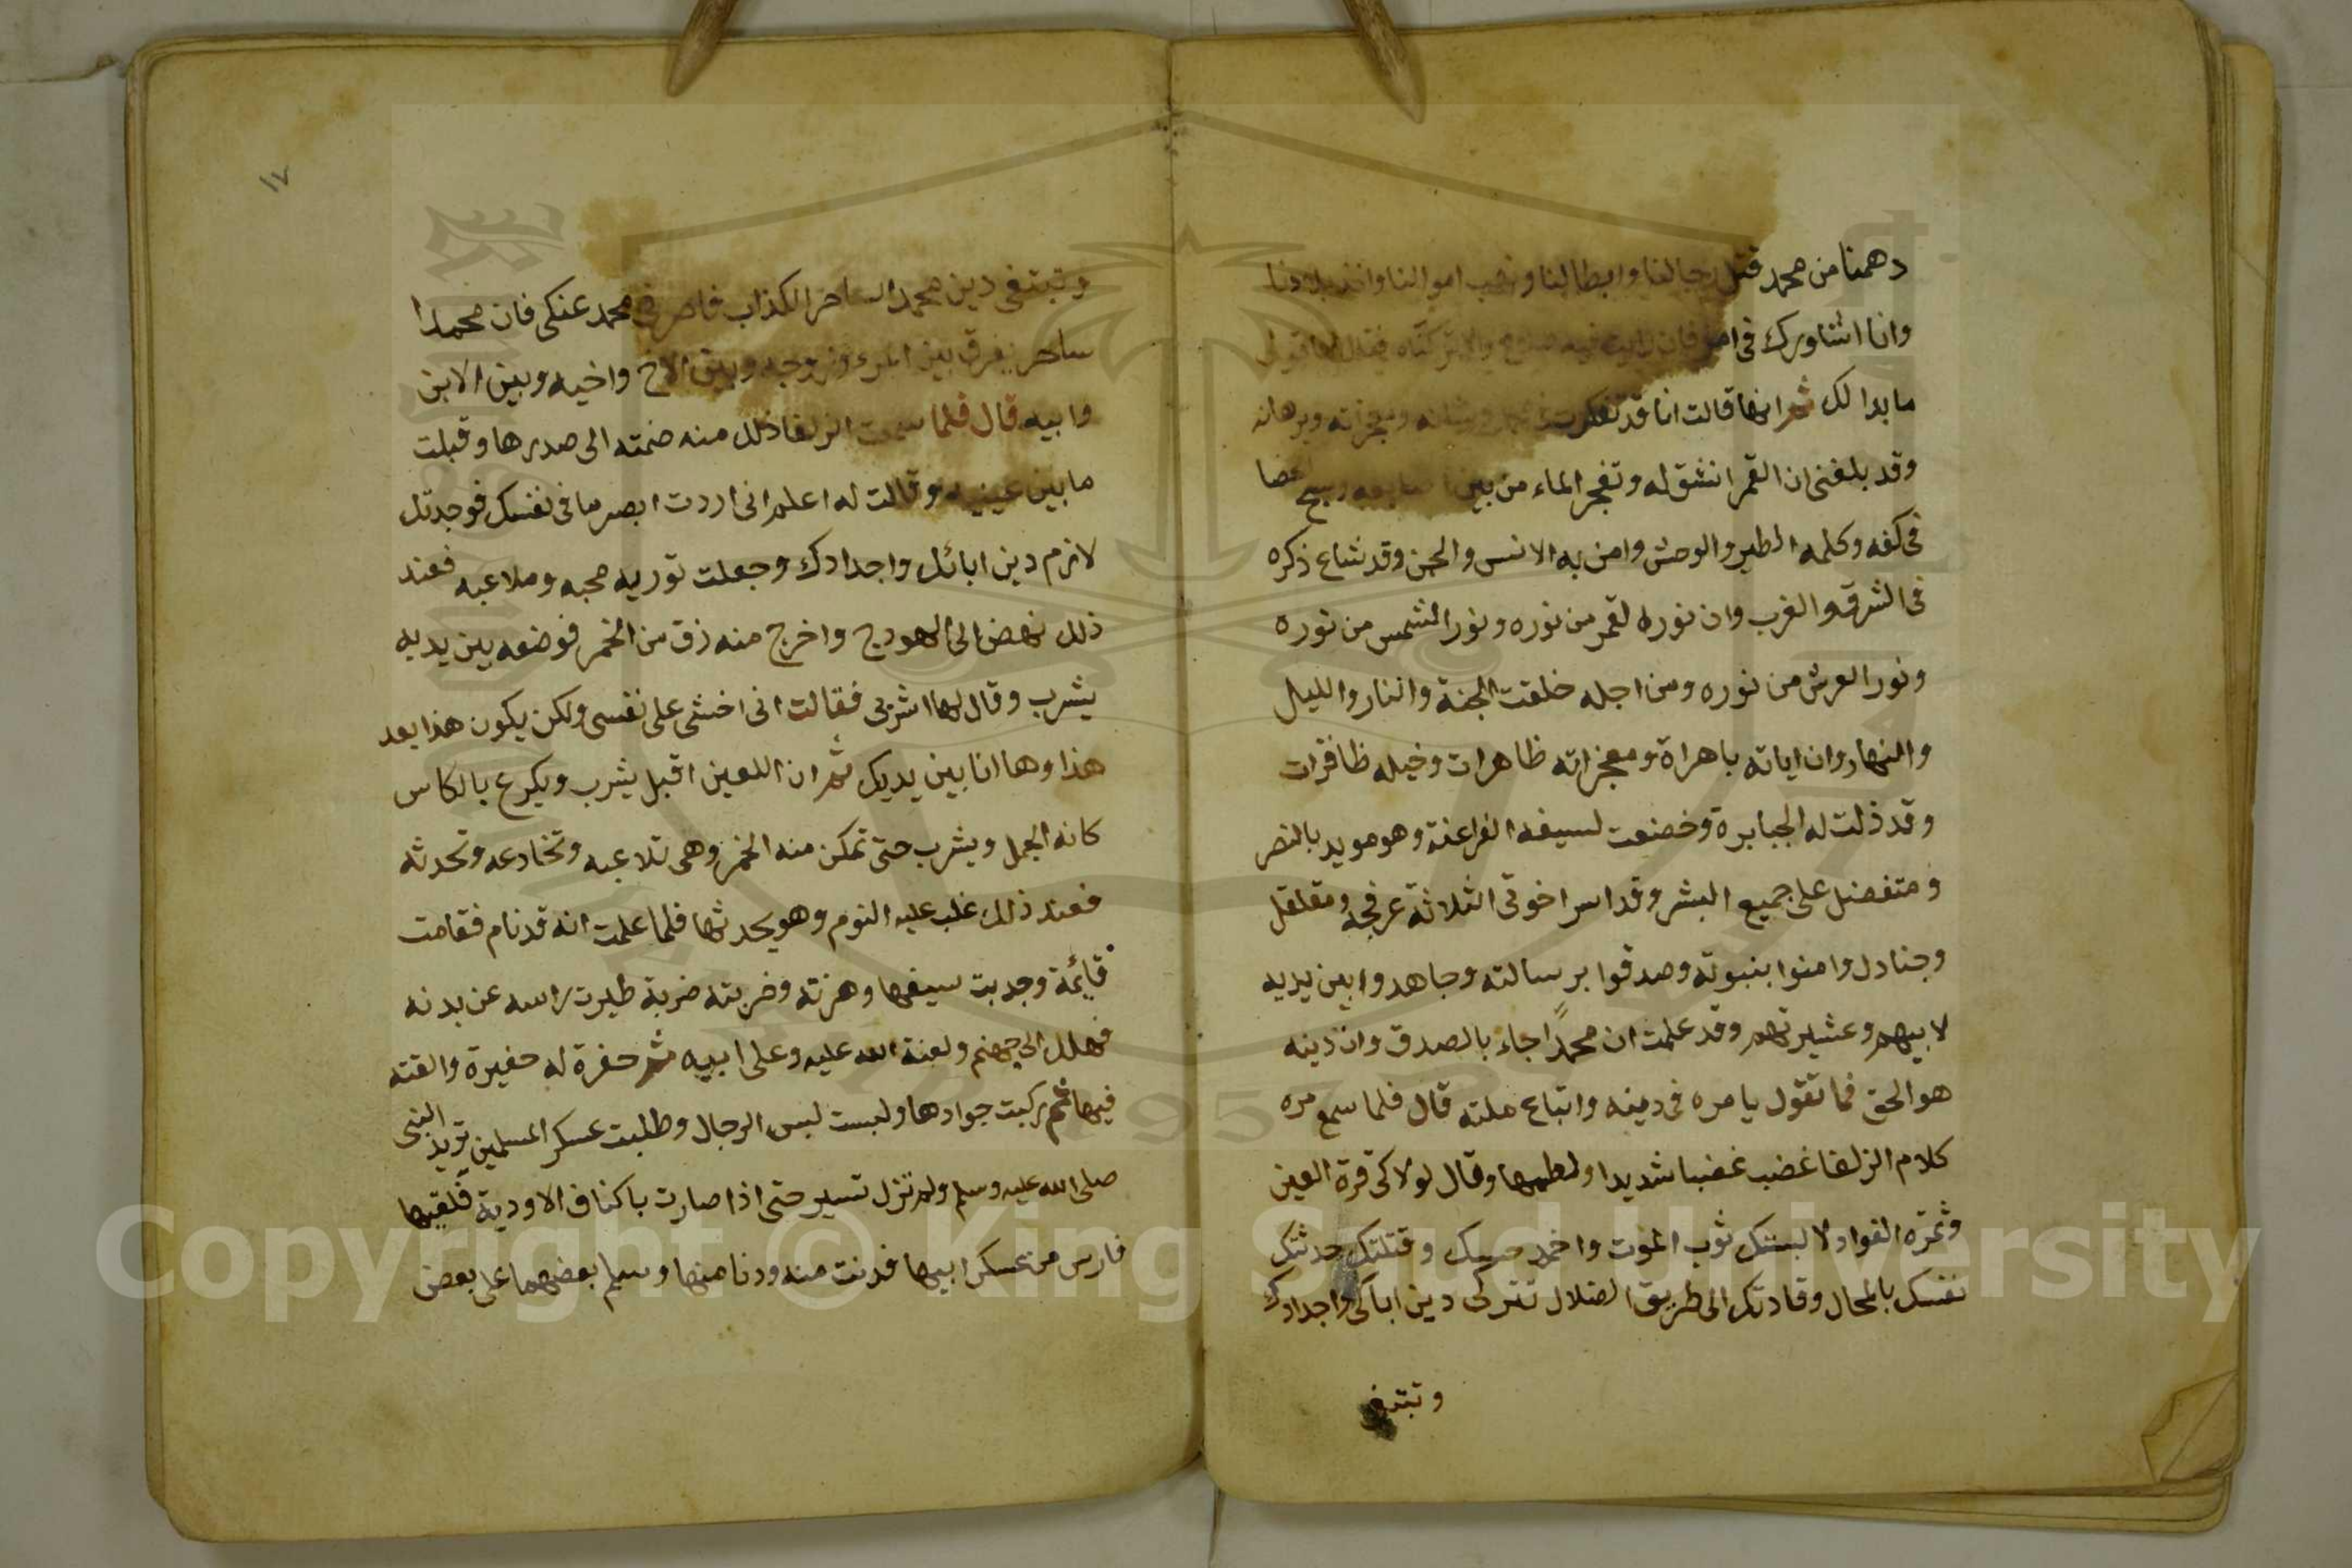 دهمنا من محمد قتل رجالنا وابطالنا ونهب اموالنا واخذ بلادنا
وانا اشاورك فى امر فان رايت فيه صلاح والا تركناه فقال لها قولى
ما بدا لك ثم انها قالت انا قد تفكرت فى محمد وشانه ومعجزته وبرهانه
وقد بلغنى ان القمر انشق له وتفجر الماء من بين اصابعه وسبح الحصا
فى كفه وكلمه الطير والوحش وامن به الانس والجن وقد شاع ذكره
فى الشرق والغرب وان نور القمر من نوره ونور الشمس من نوره
ونور العرش من نوره ومن اجله خلقت الجنة والنار والليل
والنهار وان اياته باهراة ومعجزاته ظاهرات وخيله ظافرات
وقد ذلت له الجبابرة وخضعت لسيفه الفراعنة وهو مويد بالنصر
ومتفضل على جميع البشر وقد اسر اخوتى الثلاثة عرفجه ومقلقل
وجنادل وامنوا بنبوته وصدقوا برسالته وجاهدوا بين يديه
لابيهم وعشيرتهم وقد علمت ان محمدًا جاء بالصدق وان دينه
هو الحق فما تقول يا مره فى دينه واتباع ملته قال فلما سمع مره
كلام الزلفا غضب غضبا شديدا ولطمها وقال لولاكى قرة العين
وثمرة الفواد لالبستك ثوب الموت واخمد حسك وقتلتك حدثتك
نفسك بالمحال وقادتك الى طريق الضلال تتركى دين اباكى واجدادك
وتبتغى
١٧
وتبتغى دين محمد الساحر الكذاب فاصرفى محمد عنكى فان محمدا
ساحر يفرق بين المرء وزوجه وبين الاخ واخيه وبين الابن
وابيه قال فلما سمعت الزلفا ذلك منه ضمته الى صدرها وقبلت
ما بين عينيه وقالت له اعلم انى اردت ابصر ما فى نفسك فوجدتك
لازم دين ابائك واجدادك وجعلت توريه محبه وملاعبه فعند
ذلك نهض الى الهودج واخرج منه زق من الخمر فوضعه بين يديه
يشرب وقال لها اشربى فقالت انى اخشى على نفسى ولكن يكون هذا بعد
هذا وها انا بين يديك ثم ان اللعين اقبل يشرب ويكرع بالكاس
كانه الجمل ويشرب حتى تمكن منه الخمر وهى تلاعبه وتخادعه وتحدثه
فعند ذلك غلب عليه النوم وهو يحدثها فلما علمت انه قد نام فقامت
قايمة وجدبت سيفها وهزته وضربته ضربة طيرت راسه عن بدنه
فهلك الى جهنم ولعنة الله عليه وعلى ابيه ثم حفرة له حفيرة والقته
فيها ثم ركبت جوادها ولبست لبس الرجال وطلبت عسكر المسلمين تريد النبى
صلى الله عليه وسلم ولم تزل تسير حتى اذا صارت باكناف الاودية فلقيها
فارس من عسكر ابيها فدنت منه ودنا منها وسلم بعضهما على بعض
Copyright © King Saud University